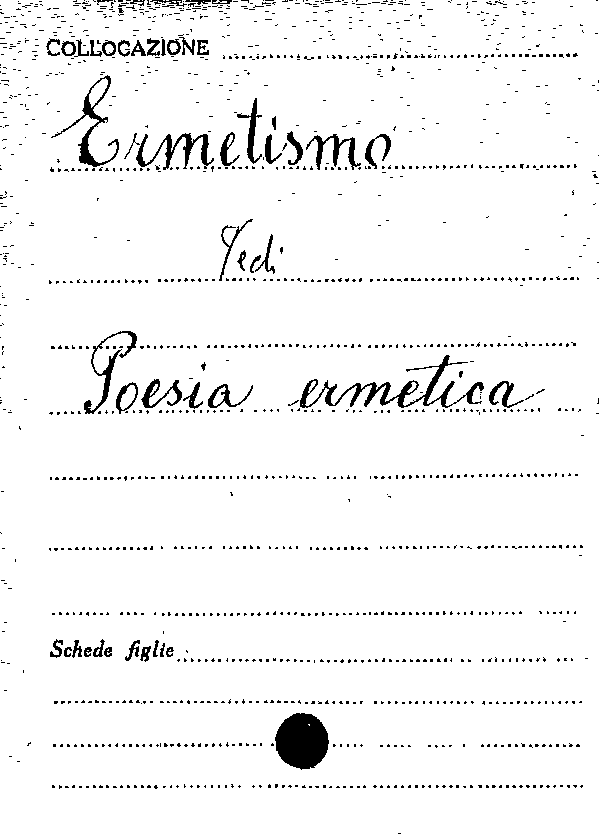 COLLOCAZIONE
Ermetismo
Vedi
Poesia ermetica
Schede figlie